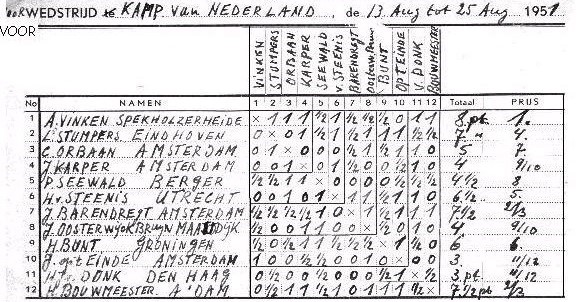 VOORWEDSTRIJD te KAMP van NEDERLAND, de 13 Aug tot 25 Aug 1951
VINKEN STUMPERS ORBAAN KARPER SEEWALD v. STEENIS BARENDREGT Oosterw. Bruyn BUNT OPT EINDE v. DONK BOUWMEESTER
No NAMEN 1 2 3 4 5 6 7 8 9 10 11 12 Totaal PRIJS
1 A. VINKEN SPEKHOLZERHEIDE × 1 1 1 ½ 1 ½ ½ ½ 0 1 1 8 pt. 1.
2 L. STUMPERS EINDHOVEN 0 × 0 1 ½ 1 ½ 1 1 1 ½ ½ 7 " 4.
3 C. ORBAAN AMSTERDAM 0 1 × 0 0 0 ½ 1 ½ 1 1 0 5 7
4 J. KARPER AMSTERDAM 0 0 1 × 0 1 ½ 0 0 ½ 1 0 4 9/10
5 P. SEEWALD BERGER ½ ½ 1 1 × 0 0 0 0 ½ ½ ½ 4½ 8
6 H. v. STEENIS UTRECHT 0 0 1 0 1 × ½ 1 ½ ½ 1 1 6½ 5.
7 J. BARENDREGT AMSTERDAM ½ ½ ½ ½ 1 ½ × 1 ½ ½ 1 1 7½ 2/3
8 J. OOSTERWYCK BRUYN MAARTDYK ½ 0 0 1 1 0 0 × 0 1 ½ 0 4 9/10
9 H. BUNT GRONINGEN ½ 0 ½ 1 1 ½ ½ 1 × 1 0 0 6 6.
10 J. opt EINDE AMSTERDAM 1 0 0 ½ ½ ½ ½ 0 0 × 0 0 3. 11/12
11 H. v. DONK DEN HAAG 0 ½ 0 0 ½ 0 0 ½ 1 × ½ 3. pt. 11/12
12 H. BOUWMEESTER A'DAM 0 ½ 1 1 ½ 0 0 1 1 1 ½ × 7½ pt 2/3